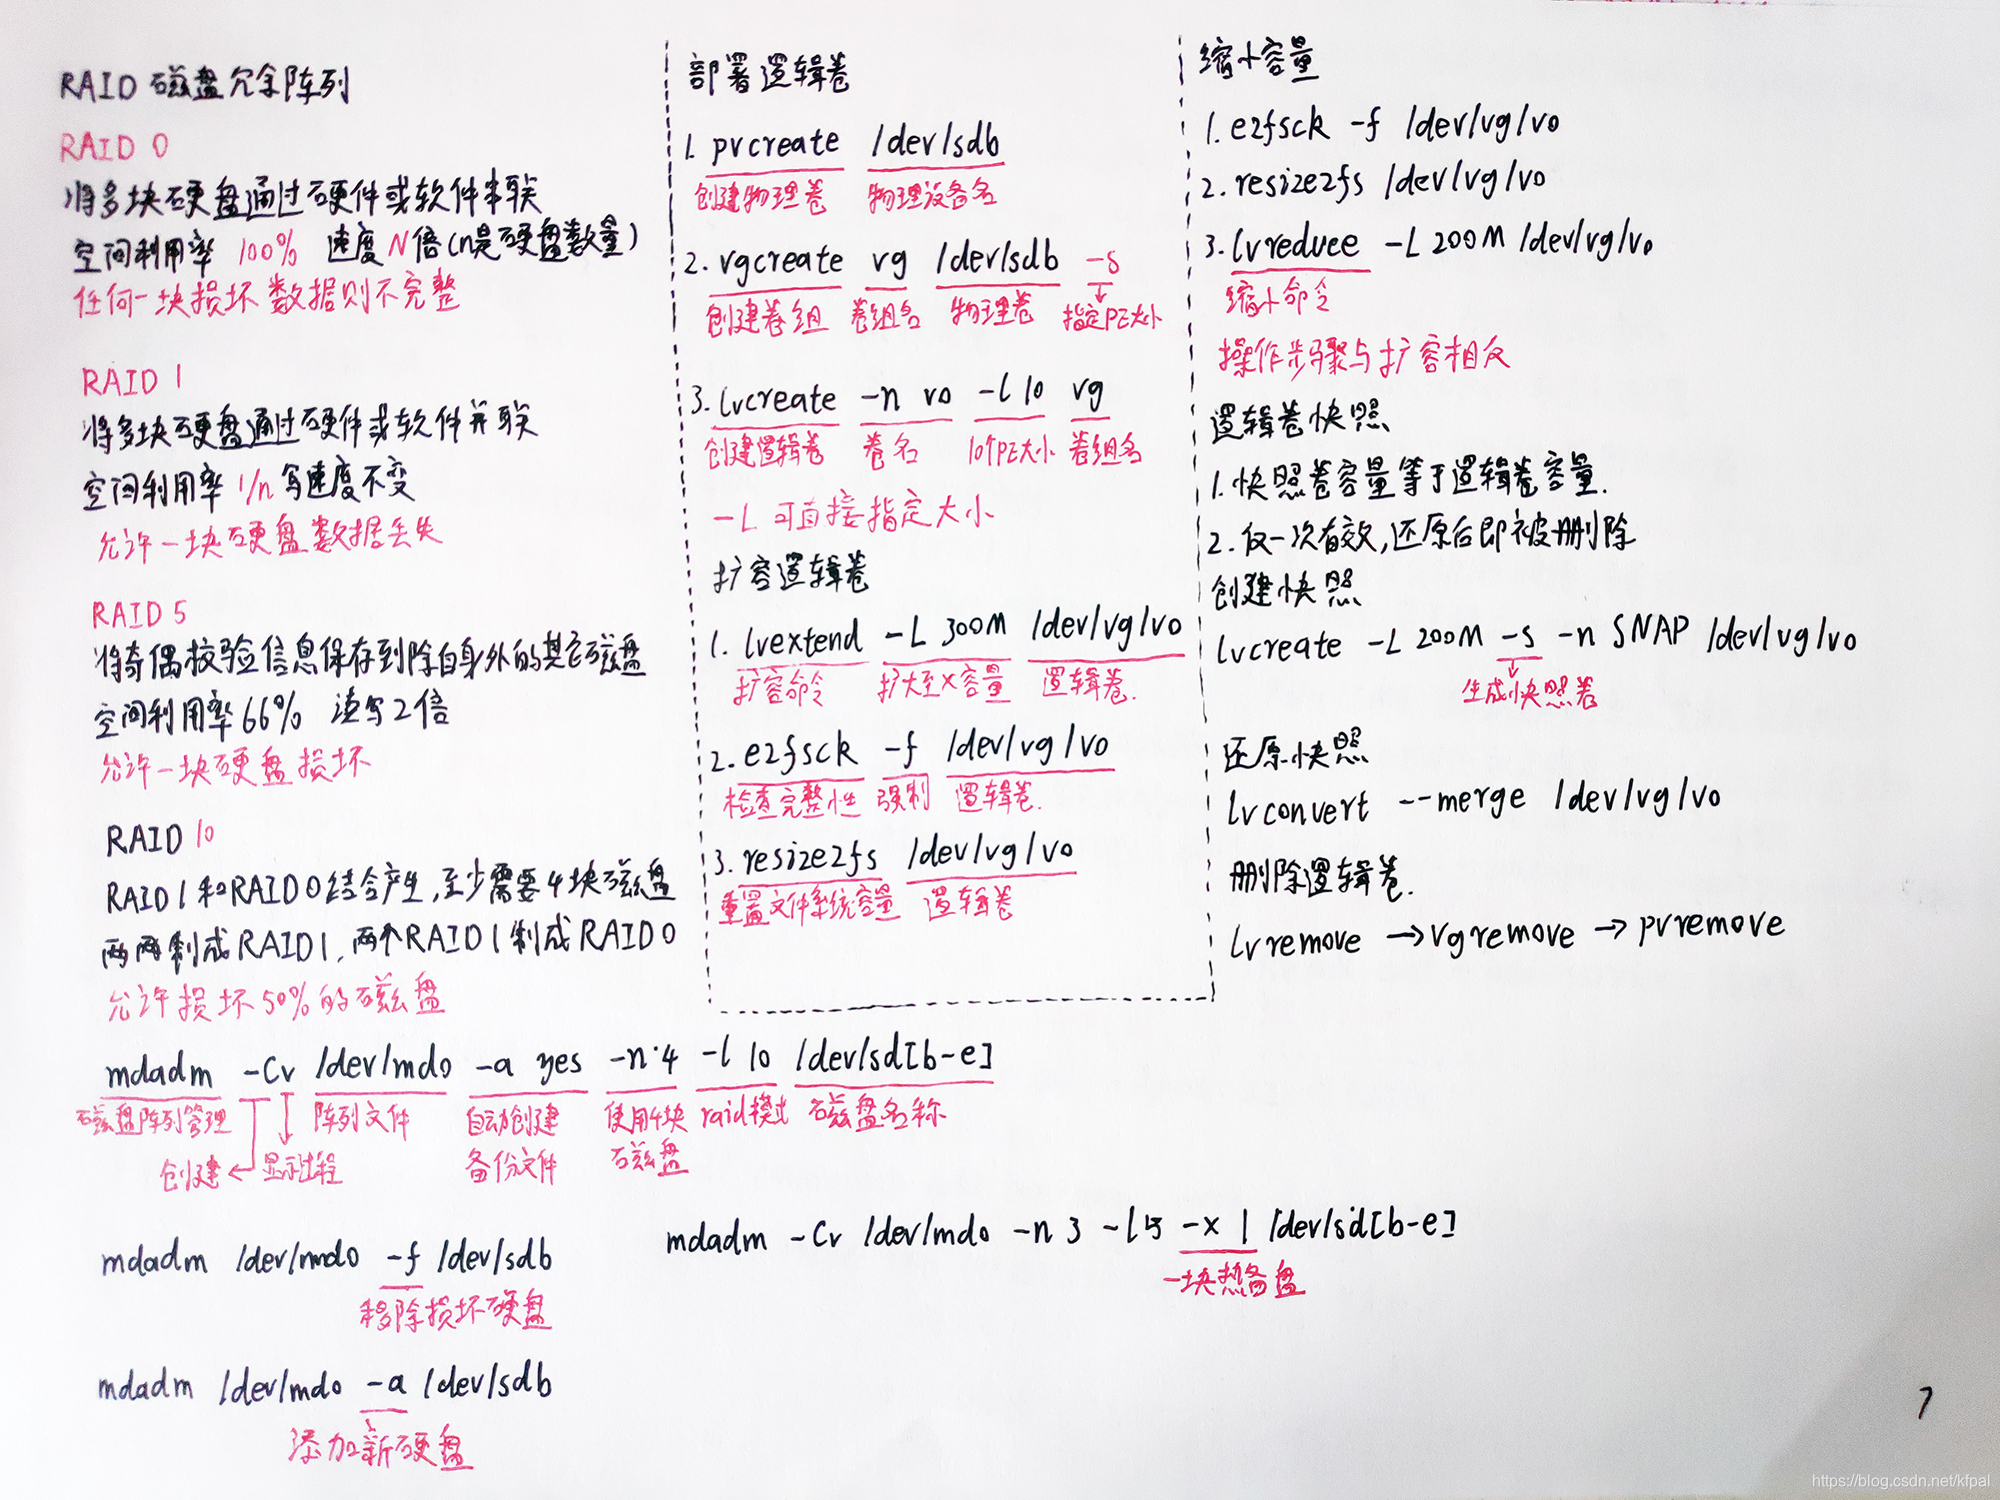 RAID 磁盘冗余阵列
RAID 0
将多块硬盘通过硬件或软件串联
空间利用率 100% 速度N倍(n是硬盘数量)
任何一块损坏数据则不完整
RAID 1
将多块硬盘通过硬件或软件并联
空间利用率 1/n 写速度不变
允许一块硬盘数据丢失
RAID 5
将奇偶校验信息保存到除自身外的其它磁盘
空间利用率66% 读写2倍
允许一块硬盘损坏
RAID 10
RAID 1 和RAID 0结合产生,至少需要4块磁盘
两两制成RAID1,两个RAID1制成RAID0
允许损坏50%的磁盘
部署逻辑卷
1. pvcreate /dev/sdb
创建物理卷 物理设备名
2. vgcreate vg /dev/sdb -s
创建卷组 卷组名 物理卷 指定PE大小
3. lvcreate -n vo -l 10 vg
创建逻辑卷 卷名 10个PE大小 卷组名
-L 可直接指定大小
扩容逻辑卷
1. lvextend -L 300M /dev/vg/vo
扩容命令 扩大至X容量 逻辑卷.
2. e2fsck -f /dev/vg/vo
检查完整性 强制 逻辑卷.
3. resize2fs /dev/vg/vo
重置文件系统容量 逻辑卷
缩小容量
1. e2fsck -f /dev/vg/vo
2. resize2fs /dev/vg/vo
3. lvreduce -L 200M /dev/vg/vo
缩小命令
操作步骤与扩容相反
逻辑卷快照
1. 快照卷容量等于逻辑卷容量.
2. 仅一次有效,还原后即被删除
创建快照
lvcreate -L 200M -s -n SNAP /dev/vg/vo
生成快照卷
还原快照
lvconvert --merge /dev/vg/vo
删除逻辑卷.
lvremove →vgremove → pvremove
mdadm -Cv /dev/md0 -a yes -n 4 -l 10 /dev/sd[b-e]
磁盘阵列管理 阵列文件 自动创建 使用4块 raid模式 磁盘名称
创建 ← 显示过程 备份文件 磁盘
mdadm /dev/md0 -f /dev/sdb
移除损坏硬盘
mdadm -Cv /dev/md0 -n 3 -l 5 -x 1 /dev/sd[b-e]
一块热备盘
mdadm /dev/md0 -a /dev/sdb
添加新硬盘
7
https://blog.csdn.net/kfpal